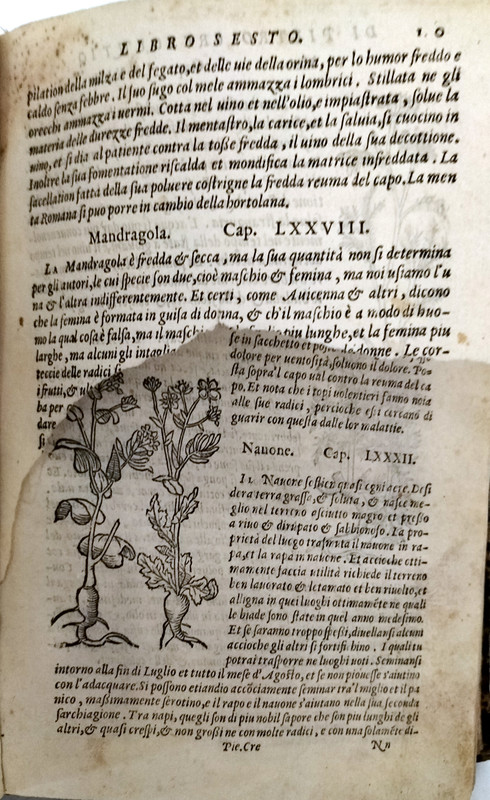 LIBRO SESTO.
pilation della milza e del fegato, et delle uie della orina, per lo humor freddo e
caldo senza febbre. Il suo sugo col mele ammazza i lombrici. Stillata ne gli
orecchi ammazza i uermi. Cotta nel uino et nell'olio, e impiastrata, solue la
materia delle durezze fredde. Il mentastro, la carice, et la saluia, si cuocino in
uino, et si dia al patiente contra la tosse fredda, il uino della sua decottione.
Inoltre la sua fomentatione riscalda et mondifica la matrice infreddata. La
sacellation fatta della sua poluere costrigne la fredda reuma del capo. La men
ta Romana si puo porre in cambio della hortolana.
Mandragola. Cap. LXXVIII.
LA Mandragola è fredda & secca, ma la sua quantità non si determina
per gli autori, le cui specie son due, cioè maschio & femina, ma noi usiamo l'u
na & l'altra indifferentemente. Et certi, come Auicenna & altri, dicono
che la femina è formata in guisa di donna, & ch'il maschio è a modo di huo-
mo la qual cosa è falsa, ma il maschio piu lunghe, et la femina piu
larghe, ma alcuni gli di donne. Le cor-
teccie delle radici
i frutti, &
ba per
dare
si
se in sacchetto et
dolore per uentosità, soluono il dolore. Po-
sta sopra'l capo ual contro la reuma del ca
po. Et nota che i topi uolentieri fanno noia
alle sue radici, percioche essi cercano di
guarir con questa dalle lor malattie.
Nauone. Cap. LXXXII.
IL Nauone desi
dera terra grassa, & soluta, & nasce me-
glio nel terreno asciutto magro et presso
a riuo & dirupato & sabbionoso. La pro-
prietà del luogo trasmuta il nauone in ra-
pa, et la rapa in nauone. Et accioche otti-
mamente faccia utilità richiede il terreno
ben lauorato & letamato et ben riuolto, et
alligna in quei luoghi ottimamẽte ne quali
le biade sono state in quel anno medesimo.
Et se saranno troppo spessi, diuellansi alcuni
accioche gli altri si fortifichino. I quai tu
potrai trasporre ne luoghi uoti. Seminansi
intorno alla fin di Luglio et tutto il mese d'Agosto, et se non piouesse s'aiutino
con l'adacquare. Si possono etiandio accõciamente seminar tra'l miglio et il pa
nico, massimamente serotino, e il rapo e il nauone s'aiutano nella sua seconda
sarchiagione. Tra napi, quegli son di piu nobil sapore che son piu lunghi de gli
altri, & quasi crespi, & non grossi ne con molte radici, e con una solamẽte di-
Pie. Cre Nn